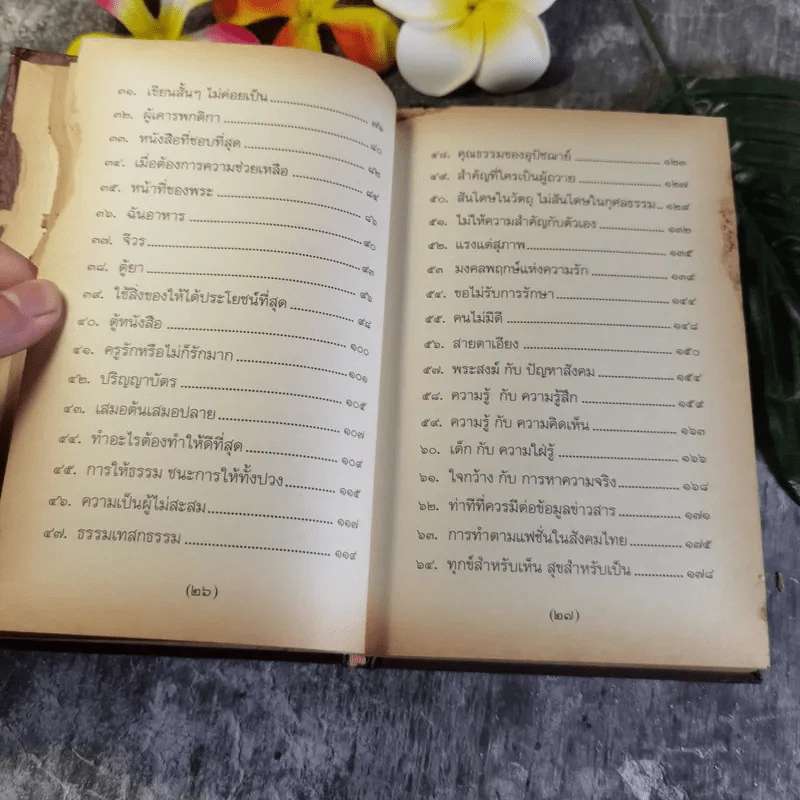 ๓๑. เขียนสั้นๆ ไม่ค่อยเป็น ........ ๗๖
๓๒. ผู้เคารพกติกา ........ ๘๐
๓๓. หนังสือที่ชอบที่สุด ........ ๘๒
๓๔. เมื่อต้องการความช่วยเหลือ ........ ๘๔
๓๕. หน้าที่ของพระ ........ ๘๖
๓๖. ฉันอาหาร ........ ๙๐
๓๗. จีวร ........ ๙๓
๓๘. ตู้ยา ........ ๙๖
๓๙. ใช้สิ่งของให้ได้ประโยชน์ที่สุด ........ ๙๘
๔๐. ตู้หนังสือ ........ ๑๐๐
๔๑. ครูรักหรือไม่ก็รักมาก ........ ๑๐๑
๔๒. ปริญญาบัตร ........ ๑๐๕
๔๓. เสมอต้นเสมอปลาย ........ ๑๐๗
๔๔. ทำอะไรต้องทำให้ดีที่สุด ........ ๑๐๙
๔๕. การให้ธรรม ชนะการให้ทั้งปวง ........ ๑๑๕
๔๖. ความเป็นผู้ไม่สะสม ........ ๑๑๗
๔๗. ธรรมเทสกธรรม ........ ๑๑๙
(๒๖)
๔๘. คุณธรรมของอุปัชฌาย์ ........ ๑๒๓
๔๙. สำคัญที่ใครเป็นผู้ถวาย ........ ๑๒๗
๕๐. สันโดษในวัตถุ ไม่สันโดษในกุศลธรรม .. ๑๒๙
๕๑. ไม่ให้ความสำคัญกับตัวเอง ........ ๑๓๒
๕๒. แรงแต่สุภาพ ........ ๑๓๕
๕๓ มงคลพฤกษ์แห่งความรัก ........ ๑๓๙
๕๔. ขอไม่รับการรักษา ........ ๑๔๔
๕๕. คนไม่มีดี ........ ๑๔๘
๕๖. สายตาเอียง ........ ๑๕๐
๕๗. พระสงฆ์ กับ ปัญหาสังคม ........ ๑๕๔
๕๘. ความรู้ กับ ความรู้สึก ........ ๑๕๙
๕๙. ความรู้ กับ ความคิดเห็น ........ ๑๖๓
๖๐. เด็ก กับ ความใฝ่รู้ ........ ๑๖๖
๖๑. ใจกว้าง กับ การหาความจริง ........ ๑๖๘
๖๒. ท่าทีที่ควรมีต่อข้อมูลข่าวสาร ........ ๑๗๑
๖๓. การทำตามแฟชั่นในสังคมไทย ........ ๑๗๕
๖๔. ทุกข์สำหรับเห็น สุขสำหรับเป็น ........ ๑๗๘
(๒๗)